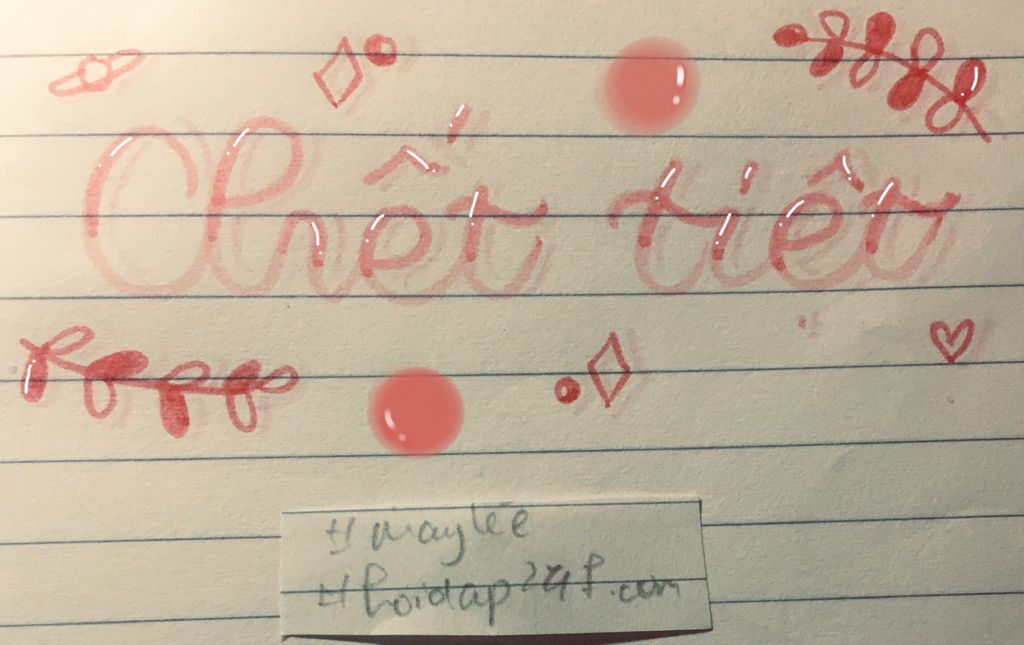 Chết tiệt
#maylee
#hoidap247.com